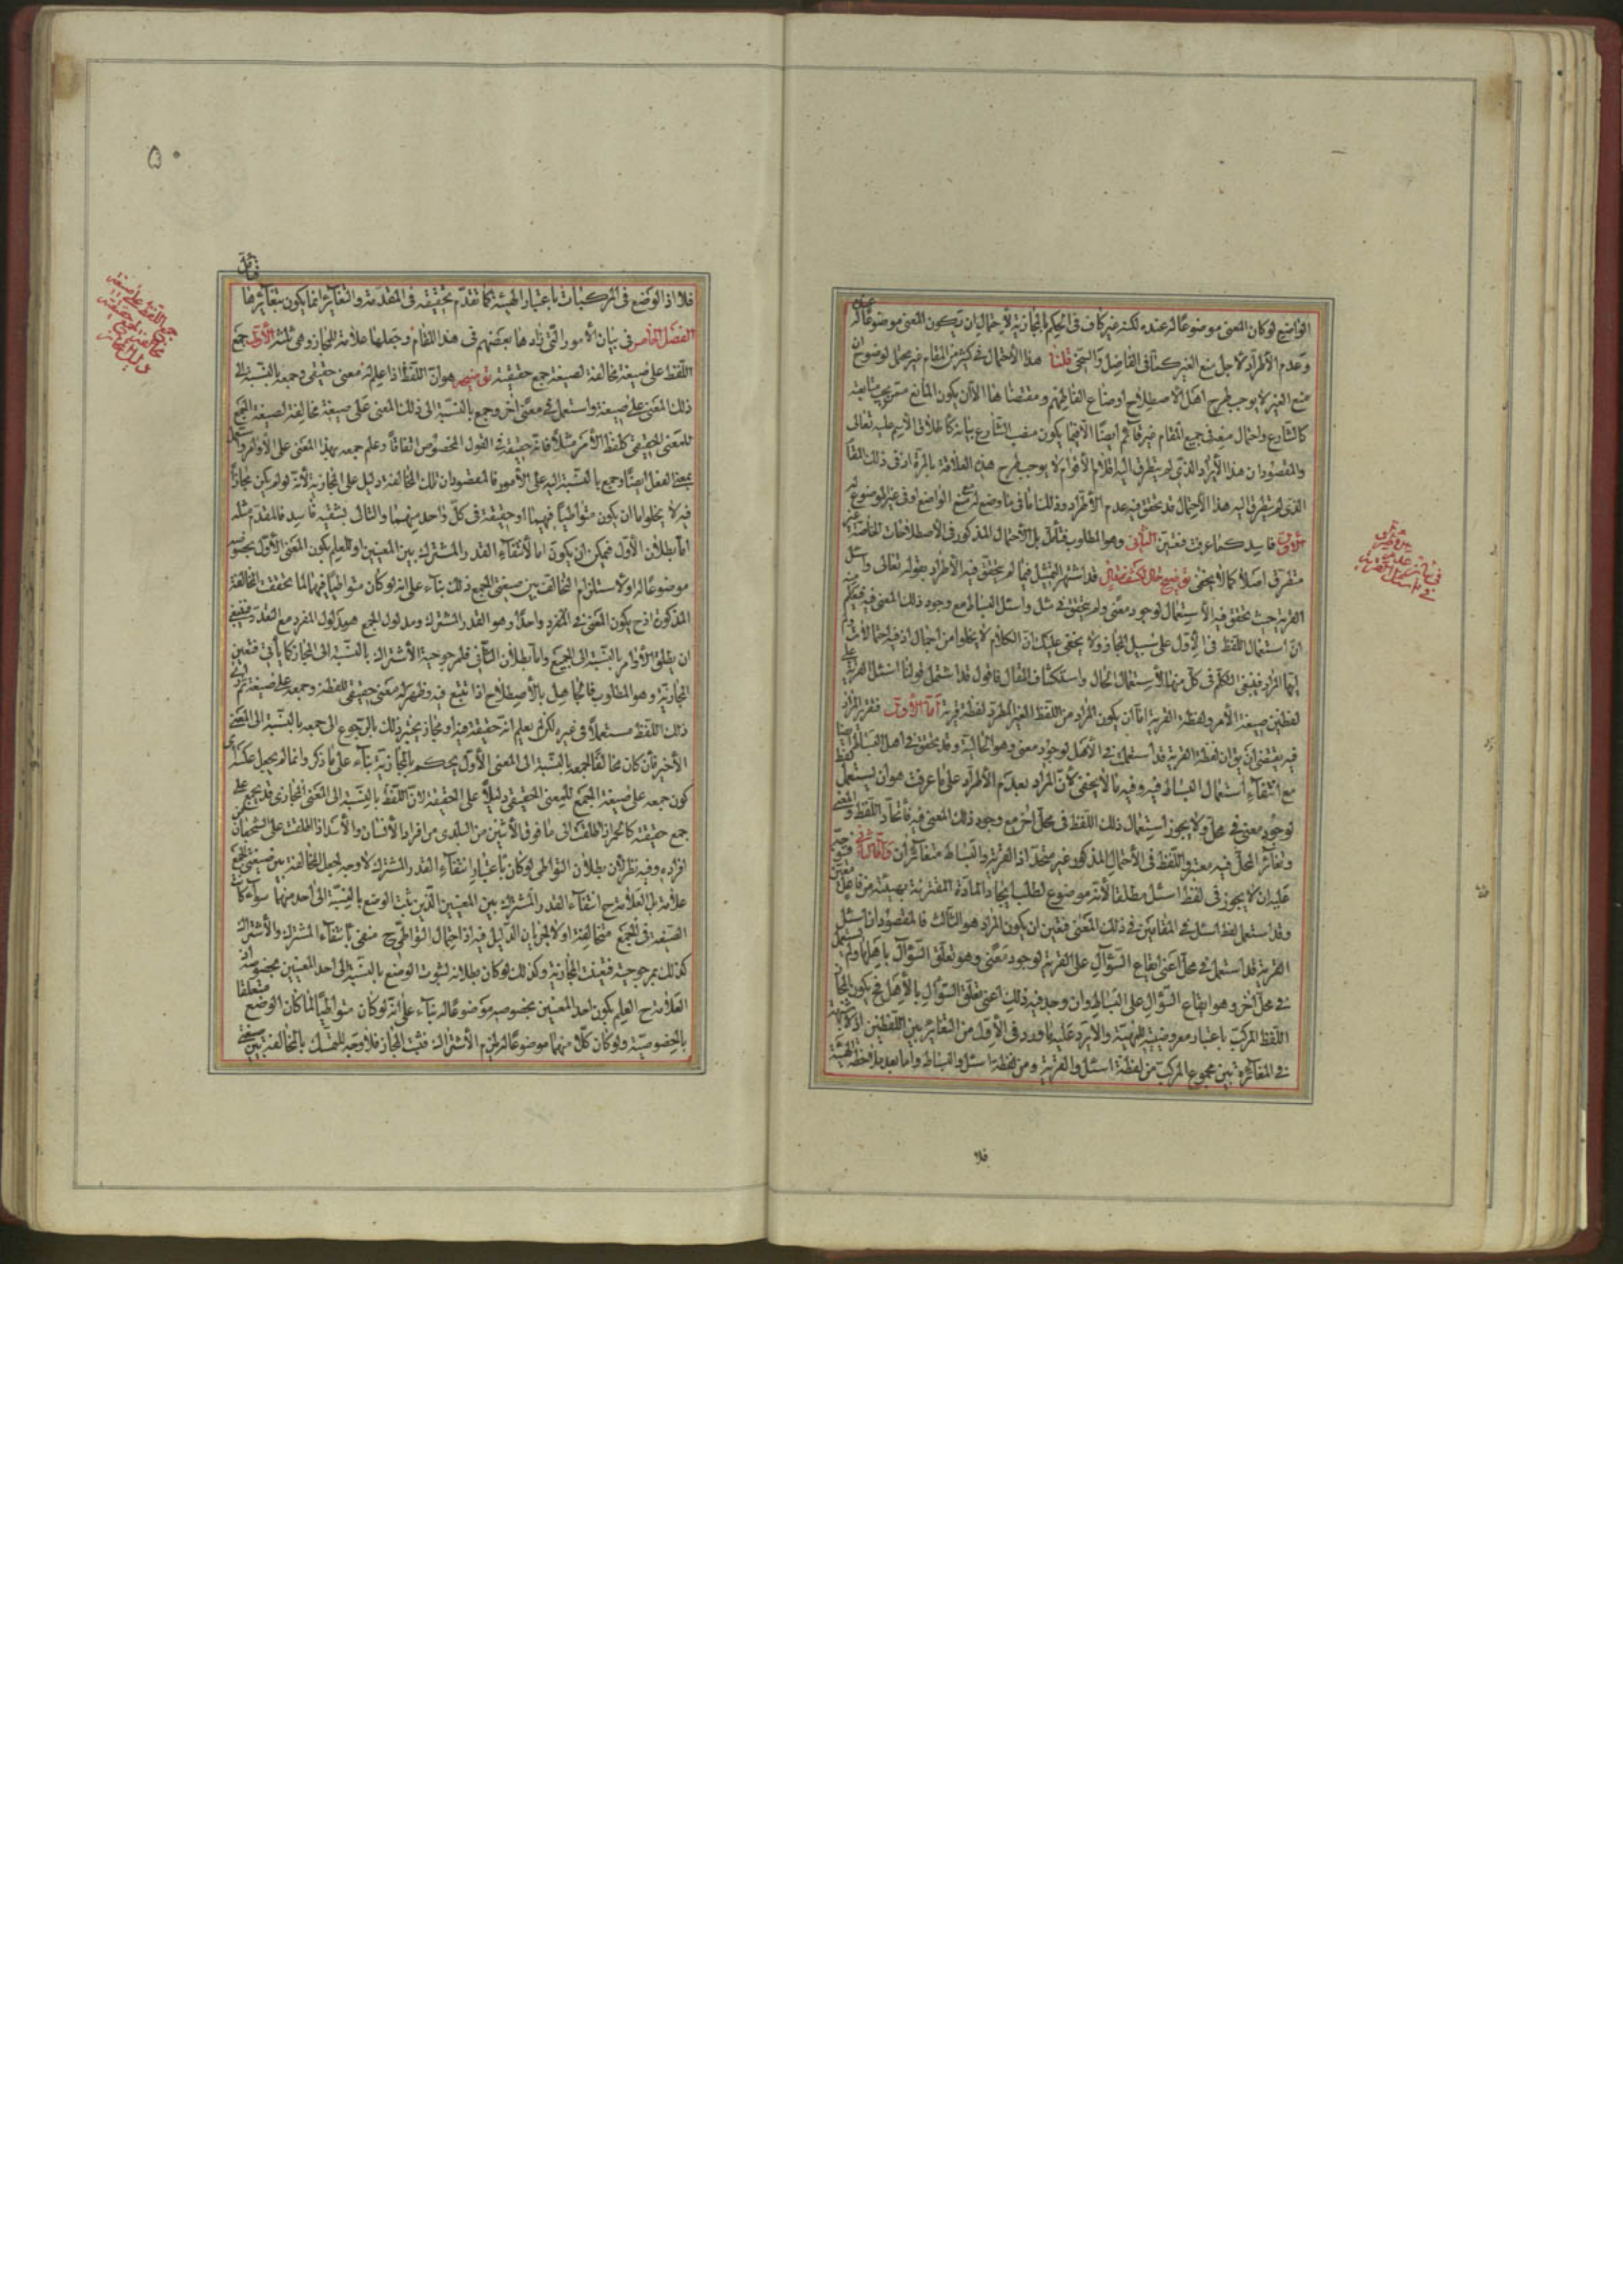 الواضع لو كان المعنى موضوعا له عنده لكنه غير كاف في الحكم بالمجازية لاحتمال ان يكون المعنى موضوعا له
وعدم الاطراد لاجل منع الغير كما في الفاضل والسخي قلنا هذا الاحتمال في كثير من المقام غير محتمل لوضوح ان
منع الغير لا يوجب طرح اهل الاصطلاح اوضاع الفاظهم ومقتضاها الا ان يكون المانع ممن يجب متابعته
كالشارع واحتمال منعه في جميع المقام غير قائم ايضا الا فيما يكون منصب الشارع بيانه كاطلاق الاسم عليه تعالى
والمقصود ان هذا الايراد الذي لم يتطرق اليه الاقوام لا يوجب طرح هذه العلامة بالمرة اذ في ذلك المقام
الذي لم يتطرق اليه هذا الاحتمال قد تحقق فيه عدم الاطراد وذلك اما في ما وضع له منع الواضع او في غير الموضوع له
الاول فاسد كما عرفت فتعين الثاني وهو المطلوب فتأمل بل الاحتمال المذكور في الاصطلاحات الخاصة غير
متطرق اصلا كما لا يخفى توضيح حال لكشف مقال قد اشتهر التمثيل فيما لم يتحقق فيه الاطراد بقوله تعالى واسئل
القرية حيث تحقق فيه الاستعمال لوجود معنى ولم يتحقق في مثل واسئل البساط مع وجود ذلك المعنى فيه فيحكم
ان استعمال اللفظ في الاول على سبيل المجاز ولا يخفى عليك ان الكلام لا يخلوا من اجمال اذ فيه احتمالات
ايها المراد فينبغي التكلم في كل منها لاستعمال الحال واستكشاف المقال فاقول قد اشتمل قولنا اسئل القرية على
لفظين صيغة الامر ولفظة القرية اما ان يكون المراد من اللفظ الغير المطرد لفظة قرية اما الاول فتقرير المراد
فيه يقتضي ان يق ان لفظة القرية قد استعمل في الاهل لوجود معنى وهو الحالية وقد تحقق في اهل البساط ايضا
مع انتفاء استعمال البساط فيه وفيه ما لا يخفى لان المراد بعدم الاطراد على ما عرفت هو ان يستعمل لفظ
لوجود معنى في محل ولا يجوز استعمال ذلك اللفظ في محل اخر مع وجود ذلك المعنى فيه فاتحاد اللفظ والمعنى
وتغاير المحل فيه معتبر واللفظ في الاحتمال المذكور غير متحد اذ القرية والبساط متغايران واما الثاني
عليه ان لا يجوز في لفظ اسئل مطلقا لانه موضوع لطلب ايجاد المادة المقترنة بهيئته من فاعل
وقد استعمل لفظ اسئل في المقامين في ذلك المعنى فتعين ان يكون المراد هو الثالث فالمقصود ان اسئل
القرية قد استعمل في محل اعني ايقاع السؤال على القرية لوجود معنى وهو تعلق السؤال باهلها ولم يستعمل
في محل اخر وهو ايقاع السؤال على البساط وان وجد فيه ذلك اعني تعلق السؤال بالاهل فح يكون المجاز
اللفظ المركب باعتبار معروضيته للهيئة والايرد عليه ما ورد في الاول من التغاير بين اللفظين اذ لا شبهة
في المغايرة بين مجموع المركب من لفظة اسئل والقرية ومن لفظة اسئل والبساط واما بعد ملاحظة الهيئة
فلا
۵۰
فلا اذ الوضع في المركبات باعتبار الهيئة كما تقدم تحقيقه في المقدمة والتغاير انما يكون بتغايرها
فتأمل
الفصل الخامس في بيان الامور التي زادها بعضهم في هذا المقام وجعلها علامة للمجاز وهي ثلثة الاول جمع
اللفظ على صيغة مخالفة لصيغة جمع حقيقته توضيحه هو ان اللفظ اذا علم له معنى حقيقي وجمعه بالنسبة الى
ذلك المعنى على صيغة واستعمل في معنى اخر وجمع بالنسبة الى ذلك المعنى على صيغة مخالفة لصيغة الجمع
للمعنى الحقيقي كلفظ الامر مثلا فانه حقيقة في القول المخصوص اتفاقا وعلم جمعه بهذا المعنى على الاوامر واستعمل
بمعنى الفعل ايضا وجمع بالنسبة اليه على الامور فالمقصود ان تلك المخالفة دليل على المجازية لانه لو لم يكن مجازا
فيه لا يخلو اما ان يكون متواطيا فيهما او حقيقة في كل واحد منهما والتالي بشقيه فاسد فالمقدم مثله
اما بطلان الاول فيمكن ان يكون اما لانتفاء القدر المشترك بين المعنيين او للعلم بكون المعنى الاول بخصوصه
موضوعا له او لاستلزام التخالف بين صيغتي الجمع ذلك بناء على انه لو كان متواطيا فيهما لما تحققت المخالفة
المذكورة اذ ح يكون المعنى في المفرد واحدا وهو القدر المشترك ومدلول الجمع هو مدلول المفرد مع التعدد فينبغي
ان يطلق الاوامر بالنسبة الى الجميع واما بطلان الثاني فلمرجوحية الاشتراك بالنسبة الى المجاز كما يأتي فتعين
المجازية وهو المطلوب فالجاهل بالاصطلاح اذا تتبع فيه وظهر له معنى حقيقي للفظة وجمعه على صيغة ثم رأى
ذلك اللفظ مستعملا في غيره لكن لم يعلم انه حقيقة فيه او مجاز يختبر ذلك بالرجوع الى جمعه بالنسبة الى المعنى
الاخير فان كان مخالفا لجمعه بالنسبة الى المعنى الاول يحكم بالمجازية بناء على ما ذكر وانما لم يجعل عكسه اي
كون جمعه على صيغة الجمع للمعنى الحقيقي دليلا على الحقيقة لان اللفظ بالنسبة الى المعنى المجازي قد يجمع على
جمع حقيقته كالحمر اذا اطلقت الى ما فوق الاثنين من البليدين من افراد الانسان والاسد اذا اطلقت على الشجعان من
افراده وفيه نظر لان بطلان التواطي لو كان باعتبار انتفاء القدر المشترك لا وجه لجعل المخالفة بين صيغتي الجمع
علامة بل العلامة ح انتفاء القدر المشترك بين المعنيين الذين ثبت الوضع بالنسبة الى احد منهما سواء كانت
الصيغة في الجمع متخالفة او لا لجريان الدليل فيه اذ احتمال التواطي ح منفي بانتفاء المشترك والاشتراك
كذلك بمرجوحيته فتعينت المجازية وكذلك لو كان بطلانه لثبوت الوضع بالنسبة الى احد المعنيين بخصوصه اذ
العلامة ح العلم بكون احد المعنيين بخصوصه موضوعا له بناء على انه لو كان متواطيا لما كان الوضع متعلقا
بالخصوصية ولو كان كل منهما موضوعا له لزم الاشتراك فثبت المجاز فلا وجه للتمسك بالمخالفة بين صيغتي